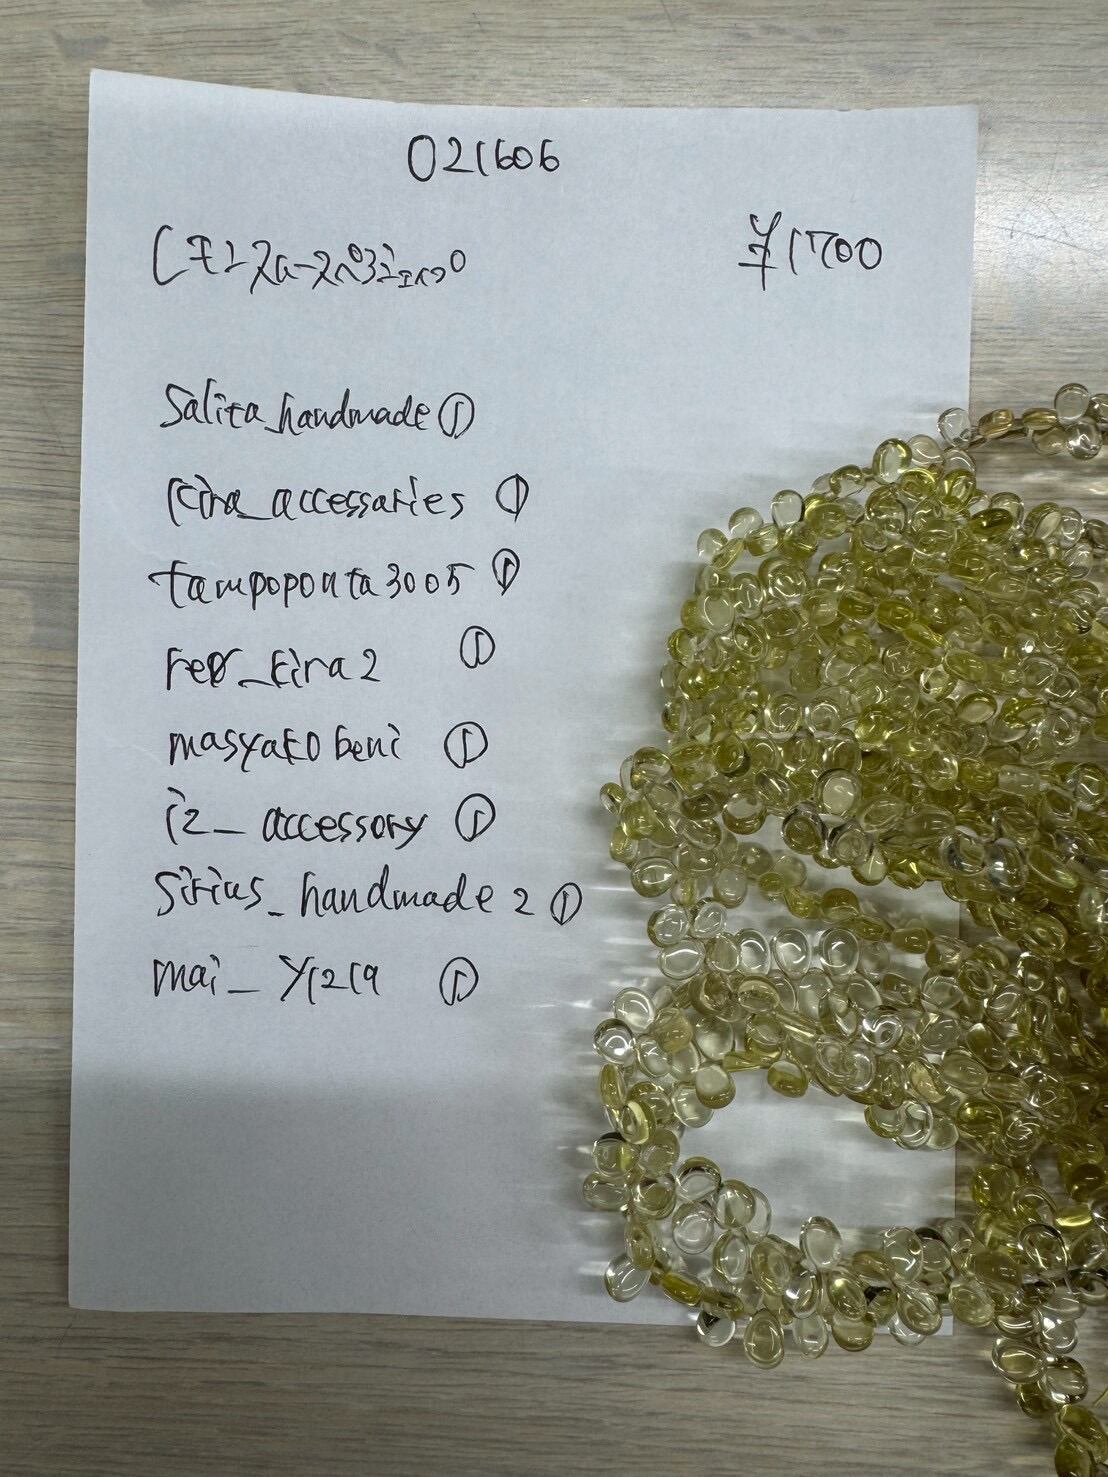 021606
¥1700
Salita_handmade ①
kira_accessaries ①
tampoponta3005 ①
①
masyakobeni ①
iz_accessory ①
Sirius_handmade2 ①
mai_y1219 ①